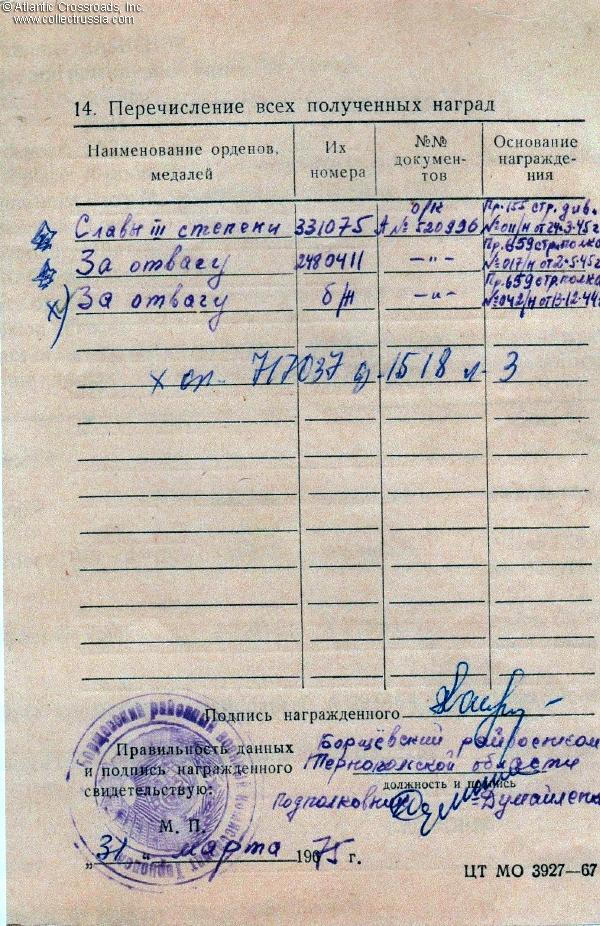 © Atlantic Crossroads, Inc.
www.collectrussia.com
14. Перечисление всех полученных наград
Наименование орденов, медалей
Их номера
№№ документов
Основание награждения
Славы III степени 331075 о/к А №520996 Пр. 155 стр. див. №011/н от 24-3-45г
За отвагу 2480411 -"- Пр. 659 стр. полка №017/н от 2-5-45г
х) За отвагу б/н -"- Пр. 659 стр. полка №042/н от 13-12-44г
х оп. 717037 д. 1518 л. 3
Подпись награжденного
Правильность данных
и подпись награжденного
свидетельствую:
Борщёвский райвоенком
Тернопольской области
должность и подпись
Подполковник Думайленко
М. П.
„31 “ марта 1975 г.
ЦТ МО 3927—67